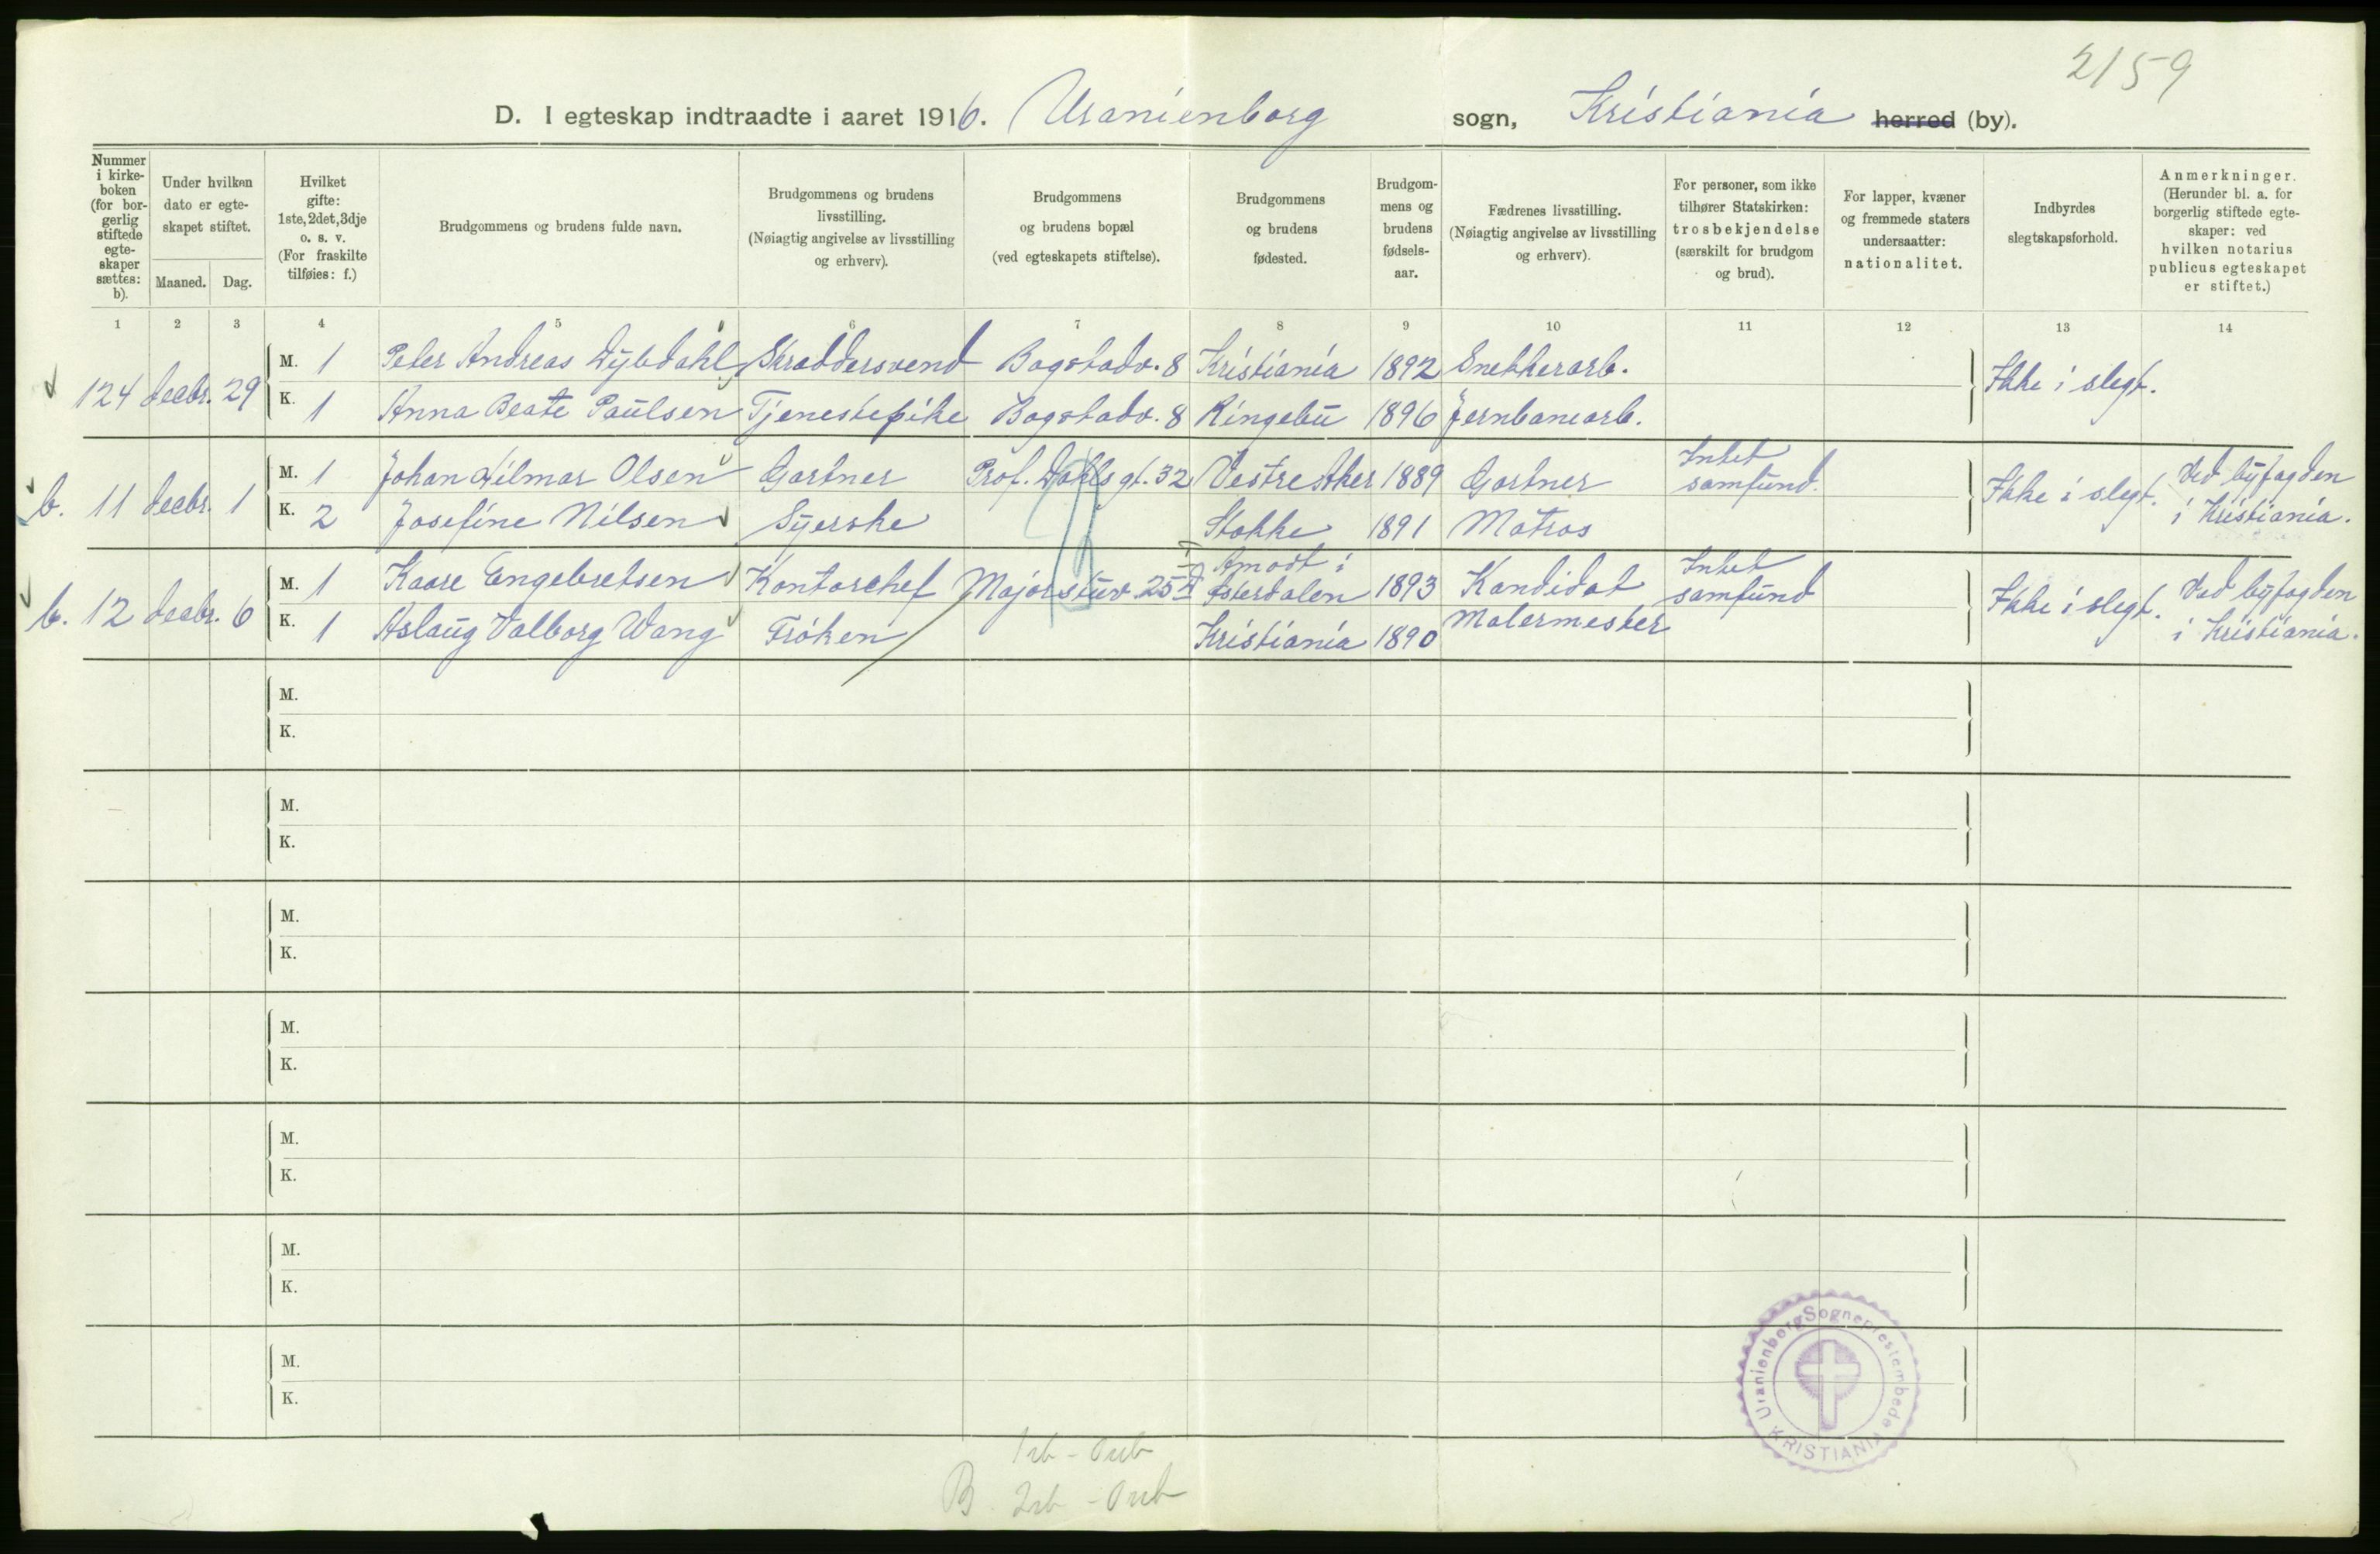 2159
D. I egteskap indtraadte i aaret 1916. Uranienborg sogn, Kristiania herred (by).
Nummer i kirke-boken (for bor-gerlig stiftede egte-skaper sættes: b).
Under hvilken dato er egte-skapet stiftet.
Maaned. Dag.
Hvilket gifte: 1ste, 2det, 3dje o. s. v. (For fraskilte tilføies: f.)
Brudgommens og brudens fulde navn.
Brudgommens og brudens livsstilling. (Nøiagtig angivelse av livsstilling og erhverv).
Brudgommens og brudens bopæl (ved egteskapets stiftelse).
Brudgommens og brudens fødested.
Brudgom-mens og brudens fødsels-aar.
Fædrenes livsstilling. (Nøiagtig angivelse av livsstilling og erhverv).
For personer, som ikke tilhører Statskirken: trosbekjendelse (særskilt for brudgom og brud).
For lapper, kvæner og fremmede staters undersaatter: nationalitet.
Indbyrdes slegtskapsforhold.
Anmerkninger. (Herunder bl. a. for borgerlig stiftede egte-skaper: ved hvilken notarius publicus egteskapet er stiftet.)
1 2 3 4 5 6 7 8 9 10 11 12 13 14
124 decbr. 29 M. 1 Peter Andreas Dybdahl Skræddersvend Bogstadv. 8 Kristiania 1892 Snekkerarb. Ikke i slegt.
K. 1 Anna Beate Paulsen Tjenestepike Bogstadv. 8 Ringebu 1896 Jernbanearb.
b. 11 decbr. 1 M. 1 Johan Hilmar Olsen Gartner Prof. Dahls gt. 32 Vestre Aker 1889 Gartner Intet samfund. Ikke i slegt. Ved byfogden i Kristiania.
K. 2 Josefine Nilsen Syerske Stokke 1891 Matros
b. 12 decbr. 6 M. 1 Kaare Engebretsen Kontorchef Majorstuv. 25 Amodt i Østerdalen 1893 Kandidat Intet samfund Ikke i slegt. Ved byfogden i Kristiania.
K. 1 Aslaug Valborg Wang Frøken Kristiania 1890 Malermester
M.
K.
M.
K.
M.
K.
M.
K.
M.
K.
M.
K.
M.
K.
Uranienborg Sogneprestembede KRISTIANIA
B.